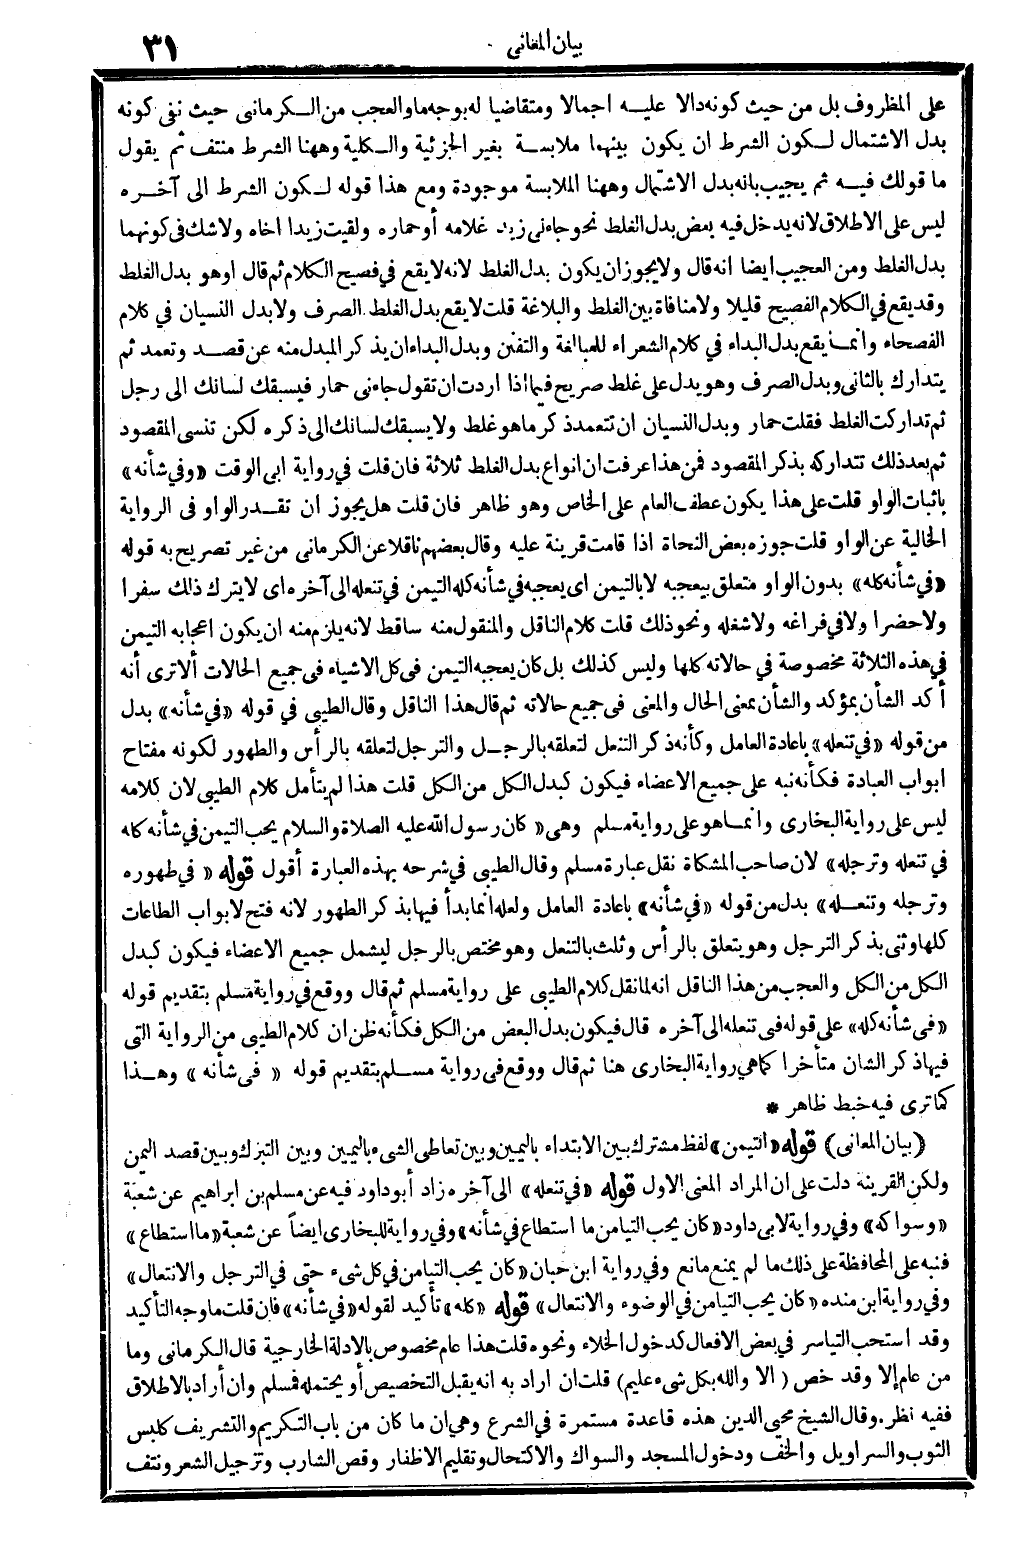 بيان المعاني
٣١
على المظروف بل من حيث كونه دالا عليه اجمالا ومتقاضيا له بوجه ما والعجب من الكرماني حيث نفى كونه
بدل الاشتمال لكون الشرط ان يكون بينهما ملابسة بغير الجزئية والكلية وههنا الشرط منتف ثم يقول
ما قولك فيه ثم يجيب بانه بدل الاشتمال وههنا الملابسة موجودة ومع هذا قوله لكون الشرط الى آخره
ليس على الاطلاق لانه يدخل فيه بعض بدل الغلط نحو جاءني زيد غلامه أو حماره ولقيت زيدا اخاه ولاشك في كونهما
بدل الغلط ومن العجيب ايضا انه قال ولا يجوز ان يكون بدل الغلط لانه لا يقع في فصيح الكلام ثم قال او هو بدل الغلط
وقد يقع في الكلام الفصيح قليلا ولا منافاة بين الغلط والبلاغة قلت لا يقع بدل الغلط الصرف ولا بدل النسيان في كلام
الفصحاء وانما يقع بدل البداء في كلام الشعراء للمبالغة والتفنن وبدل البداء ان يذكر المبدل منه عن قصد وتعمد ثم
يتدارك بالثاني وبدل الصرف وهو يدل على غلط صريح فيما اذا اردت ان تقول جاءني حمار فيسبقك لسانك الى رجل
ثم تداركت الغلط فقلت حمار وبدل النسيان ان تتعمد ذكر ما هو غلط ولا يسبقك لسانك الى ذكره لكن تنسى المقصود
ثم بعد ذلك تتداركه بذكر المقصود فمن هذا عرفت ان انواع بدل الغلط ثلاثة فان قلت في رواية ابي الوقت «وفي شأنه»
باثبات الواو قلت على هذا يكون عطف العام على الخاص وهو ظاهر فان قلت هل يجوز ان تقدر الواو في الرواية
الخالية عن الواو قلت جوزه بعض النحاة اذا قامت قرينة عليه وقال بعضهم ناقلا عن الكرماني من غير تصريح به قوله
«في شأنه كله» بدون الواو متعلق بيعجبه لا بالتيمن اي يعجبه في شأنه كله التيمن في تنعله الى آخره اى لا يترك ذلك سفرا
ولا حضرا ولا في فراغه ولا شغله ونحو ذلك قلت كلام الناقل والمنقول منه ساقط لانه يلزم منه ان يكون اعجابه التيمن
في هذه الثلاثة مخصوصة في حالاته كلها وليس كذلك بل كان يعجبه التيمن في كل الاشياء في جميع الحالات ألا ترى أنه
أكد الشأن بمؤكد والشأن بمعنى الحال والمعنى في جميع حالاته ثم قال هذا الناقل وقال الطيبي في قوله «في شأنه» بدل
من قوله «في تنعله» باعادة العامل وكأنه ذكر التنعل لتعلقه بالرجل والترجل لتعلقه بالرأس والطهور لكونه مفتاح
ابواب العبادة فكأنه نبه على جميع الاعضاء فيكون كبدل الكل من الكل قلت هذا لم يتأمل كلام الطيبي لان كلامه
ليس على رواية البخارى وانما هو على رواية مسلم وهي «كان رسول الله عليه الصلاة والسلام يحب التيمن في شأنه كله
في تنعله وترجله» لان صاحب المشكاة نقل عبارة مسلم وقال الطيبي في شرحه بهذه العبارة أقول قوله «في طهوره
وترجله وتنعله» بدل من قوله «في شأنه» باعادة العامل ولعله انما بدأ فيها بذكر الطهور لانه فتح لابواب الطاعات
كلها وثنى بذكر الترجل وهو يتعلق بالرأس وثلث بالتنعل وهو مختص بالرجل ليشمل جميع الاعضاء فيكون كبدل
الكل من الكل والعجب من هذا الناقل انه لما نقل كلام الطيبي على رواية مسلم ثم قال ووقع في رواية مسلم بتقديم قوله
«في شأنه كله» على قوله في تنعله الى آخره قال فيكون بدل البعض من الكل فكأنه ظن ان كلام الطيبي من الرواية التى
فيها ذكر الشان متأخرا كما هي رواية البخارى هنا ثم قال ووقع في رواية مسلم بتقديم قوله «في شأنه» وهذا
كما ترى فيه خبط ظاهر *
(بيان المعاني) قوله «التيمن» لفظ مشترك بين الابتداء باليمين وبين تعاطى الشىء باليمين وبين التبرك وبين قصد اليمن
ولكن القرينة دلت على ان المراد المعنى الاول قوله «في تنعله» الى آخره زاد أبو داود فيه عن مسلم بن ابراهيم عن شعبة
«وسواكه» وفي رواية لابي داود «كان يحب التيامن ما استطاع في شأنه» وفي رواية للبخارى ايضاً عن شعبة «ما استطاع»
فنبه على المحافظة على ذلك ما لم يمنع مانع وفي رواية ابن حبان «كان يحب التيامن في كل شيء حتى في الترجل والانتعال»
وفي رواية ابن منده «كان يحب التيامن في الوضوء والانتعال» قوله «كله» تأكيد لقوله «في شأنه» فان قلت ما وجه التأكيد
وقد استحب التياسر في بعض الافعال كدخول الخلاء ونحوه قلت هذا عام مخصوص بالادلة الخارجية قال الكرماني وما
من عام إلا وقد خص (الا والله بكل شيء عليم) قلت ان اراد به انه يقبل التخصيص أو يحتمله فمسلم وان أراد بالاطلاق
ففيه نظر. وقال الشيخ محيي الدين هذه قاعدة مستمرة في الشرع وهي ان ما كان من باب التكريم والتشريف كلبس
الثوب والسراويل والخف ودخول المسجد والسواك والاكتحال وتقليم الاظفار وقص الشارب وترجيل الشعر ونتف